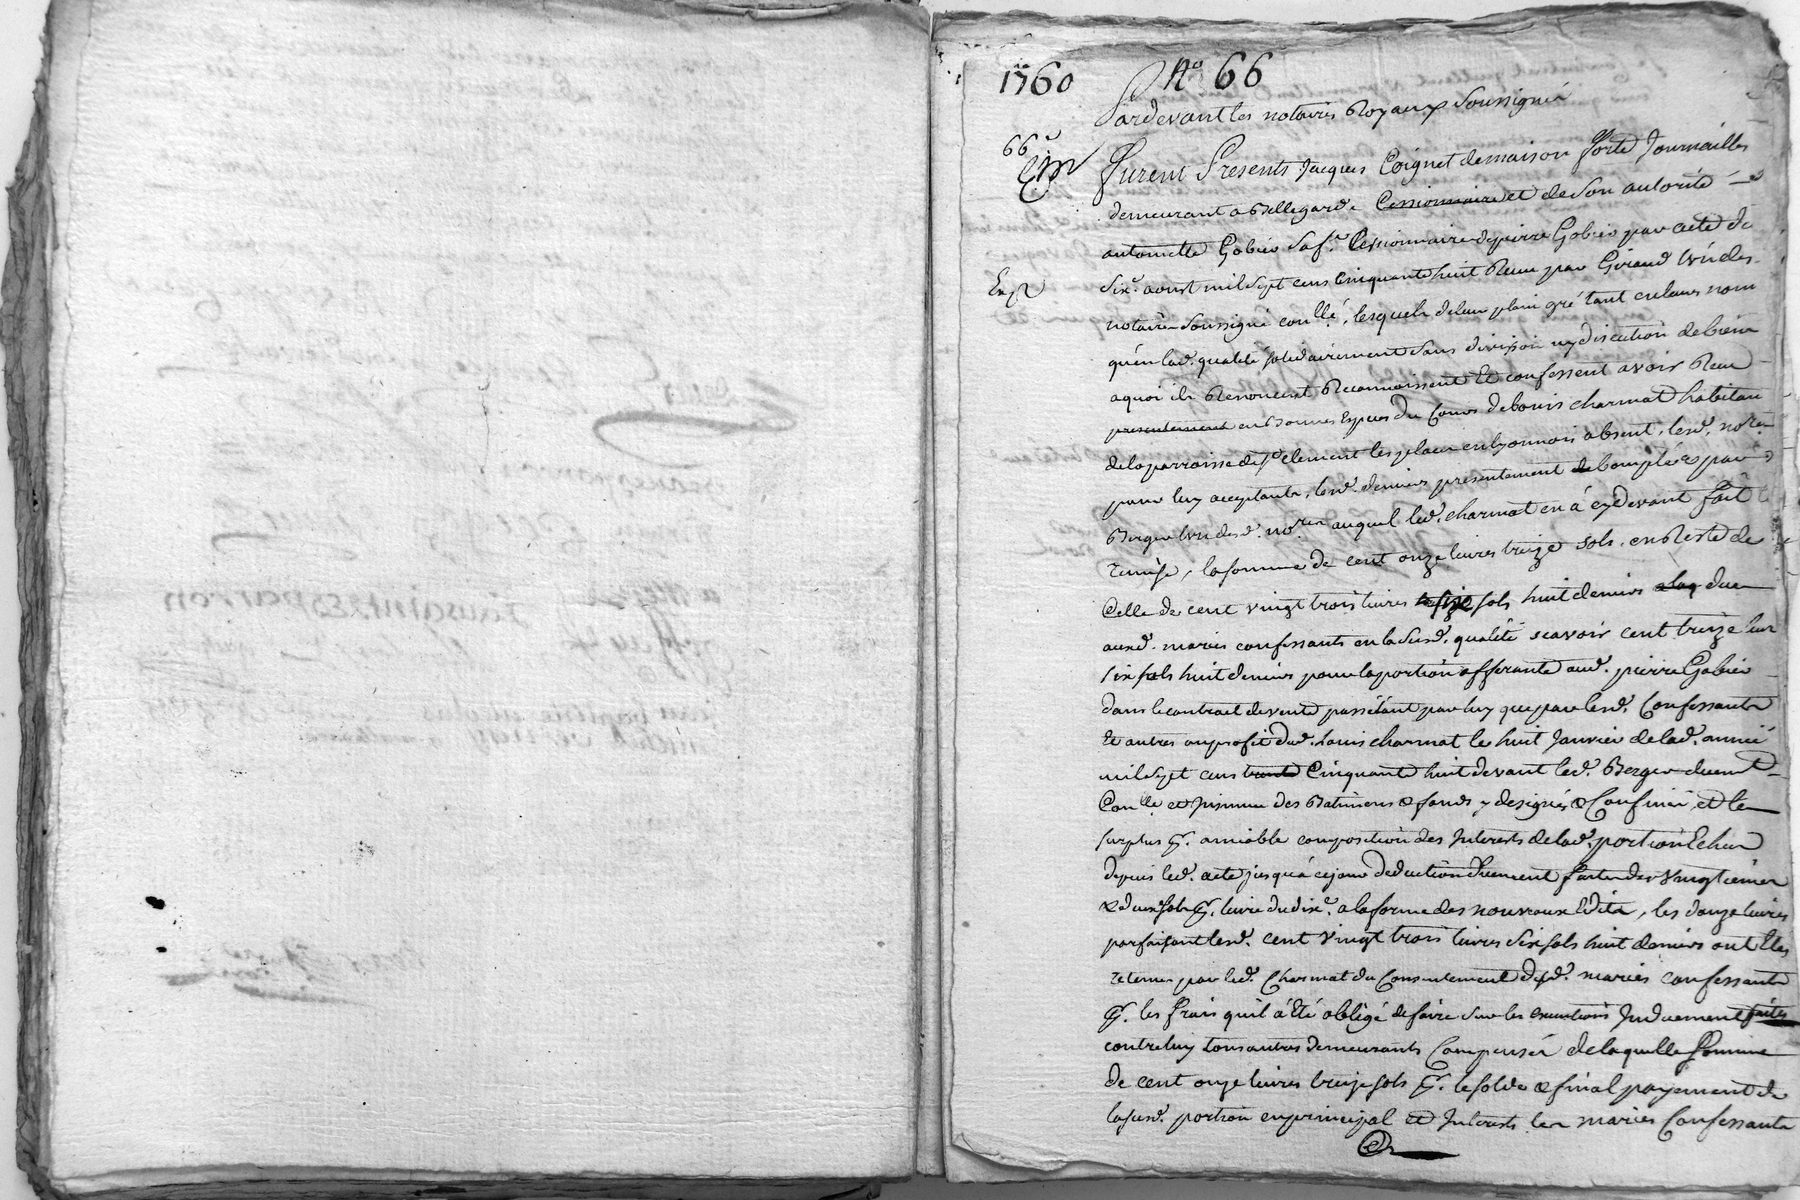 1760 No 66
Pardevant les notaires Royaux Soussignés
66e
Furent Presents Jacques Coignet demaison forte Journailler
demeurant a Bellegarde Cessionnaire et de Son autorité
antoinette Gobier Sa fe Cessionnaire de pierre Gobier par acte du
Six aoust mil Sept cens Cinquante huit Receu par Giraud l'un des
notaires Soussigné conllé, lesquels de leur plain gré tant en leurs noms
qu'en lad. qualité solidairement Sans division ny discution de biens
aquoi ils Renoncent Reconnoissent Et confessent avoir Receu
presentement en Bonnes Especes du Cours de Louis charmat habitan
de la parroisse de St Clement les places en lyonnois absent, lesd. nores
pour luy acceptants, lesd. deniers presentement Comptés par
Berger l'un desd. nores auquel led. charmat en á cydevant fait
remise, la somme de cent onze livres treize sols, en Reste de
Celle de cent vingt trois livres six sols huit deniers due
auxd. mariés confessants en la Susd. qualité scavoir cent treize livres
six sols huit deniers pour la portion afferante aud. pierre Gobier
dans le contract de vente passé tant par luy que par lesd. Confessants
Et autres au profit dud. Louis charmat le huit Janvier de lad. année
mil Sept cens trente Cinquante huit devant led. Berger duement
Conllé et Insinué des Batimens & fonds y designés & Confinés, et le
surplus pr. amiable composition des Interests de lad. portion Echus
depuis led. acte jusqu'á ce jour deduction duement faite des Vingtiemes
& deux sols pr. livre du dixe. a la forme des nouveaux Edits, les douze livres
parfaisant lesd. cent vingt trois livres Six sols huit deniers ont Etés
retenus par led. Charmat du Consentement desd. mariés confessants
pr. les frais qu'il á Eté obligé de faire Sur les executions Induement faites
contre luy tous autres demeurants Compensés de laquelle Somme
de cent onze livres treize sols pr. le solde & final payement de
la susd. portion en principal et Interests les mariés Confessants